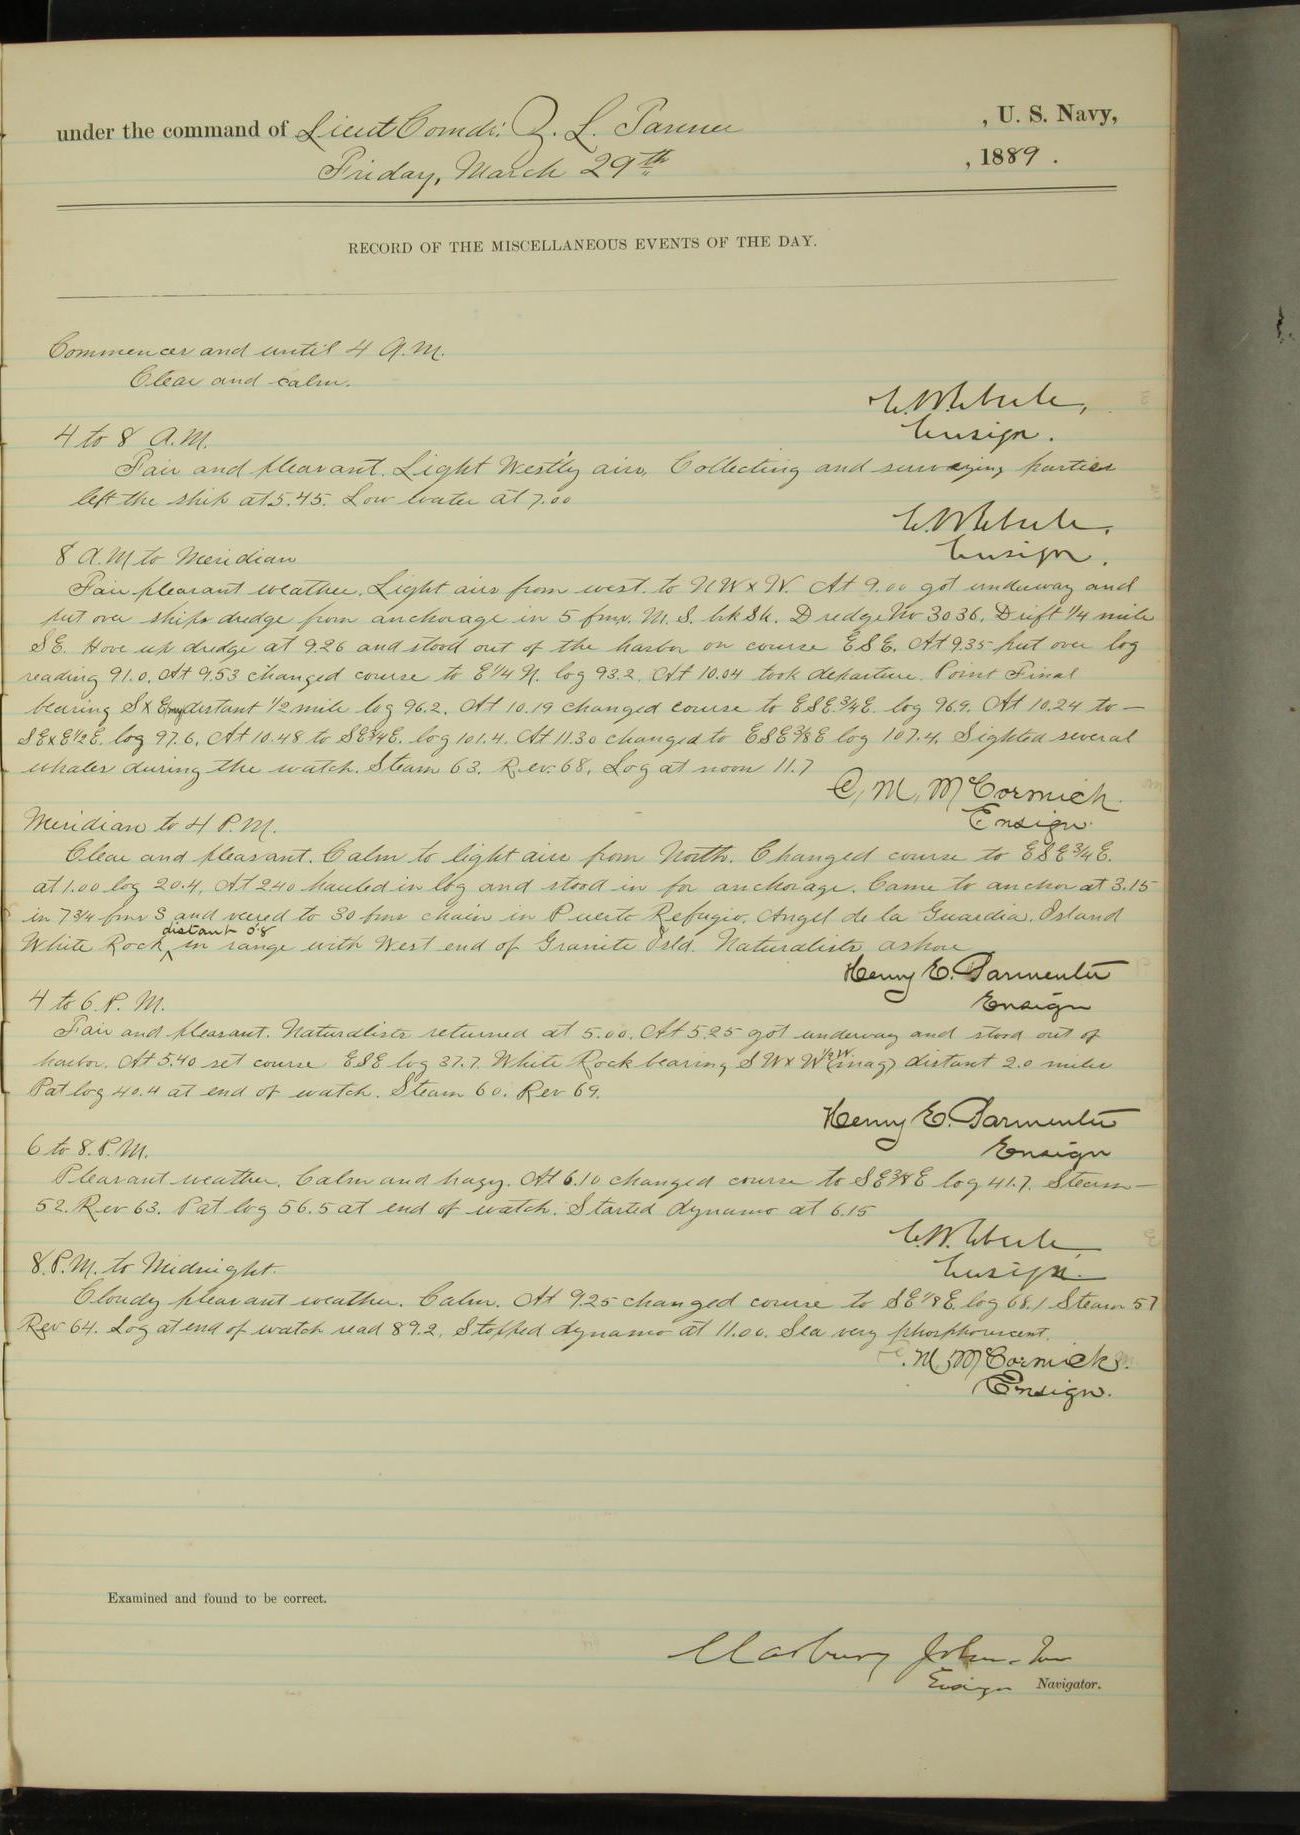 under the command of Lieut Comdr. Z. L. Tanner, U. S. Navy,
Friday, March 29th, 1889.
RECORD OF THE MISCELLANEOUS EVENTS OF THE DAY.
Commences and until 4 A.M.
Clear and calm.
E.W. Eberle,
Ensign.
4 to 8 A.M.
Fair and pleasant. Light Westly airs. Collecting and surveying parties
left the ship at 5.45. Low water at 7.00
E.W. Eberle,
Ensign.
8 A.M to Meridian
Fair pleasant weather. Light airs from west to NW x W. At 9.00 got underway and
put over ships dredge from anchorage in 5 fms. M. S. brk Sh. Dredge No 3036. Drift 1/4 mile
SE. Hove up dredge at 9.26 and stood out of the harbor on course ESE. At 9.35 put over log
reading 91.0. At 9.53 changed course to E 1/4 N. log 93.2. At 10.04 took departure. Point Final
bearing S x E mag distant 1/2 mile log 96.2. At 10.19 changed course to ESE 3/4 E. log 96.9. At 10.24 to —
SE x E 1/2 E. log 97.6. At 10.48 to SE 3/4 E. log 101.4. At 11.30 changed to ESE 3/8 E log 107.4. Sighted several
whales during the watch. Steam 63. Rev. 68. Log at noon 11.7
C. M. McCormick.
Ensign.
Meridian to 4 P.M.
Clear and pleasant. Calm to light airs from North. Changed course to ESE 3/4 E.
at 1.00 log 20.4. At 2.40 hauled in log and stood in for anchorage. Came to anchor at 3.15
in 7 3/4 fms S and veered to 30 fms chain in Puerto Refugio, Angel de la Guardia. Island
White Rock distant 0'.8 in range with West end of Granite Isld. Naturalists ashore
Henry E. Parmenter
Ensign
4 to 6 P. M.
Fair and pleasant. Naturalists returned at 5.00. At 5.25 got underway and stood out of
harbor. At 5.40 set course ESE log 37.7. White Rock bearing SW x W 1/2 W (mag) distant 2.0 miles
Pat log 40.4 at end of watch. Steam 60. Rev 69.
Henry E. Parmenter
Ensign
6 to 8. P.M.
Pleasant weather. Calm and hazy. At 6.10 changed course to SE 3/8 E log 41.7. Steam —
52. Rev 63. Pat log 56.5 at end of watch. Started dynamo at 6.15
E.W. Eberle
Ensign.
8. P.M. to Midnight.
Cloudy pleasant weather. Calm. At 9.25 changed course to SE 1/8 E. log 68.1 Steam 57
Rev 64. Log at end of watch read 89.2. Stopped dynamo at 11.00. Sea very phosphorescent.
C. M. McCormick.
Ensign.
Examined and found to be correct.
Marbury Johnston
Ensign Navigator.